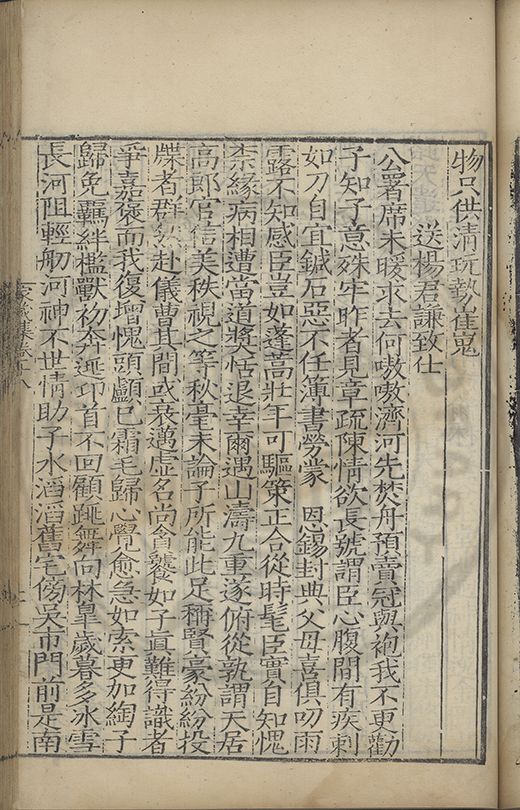 物只供清玩勢崔嵬
送楊君謙致仕
公署席未暖求去何嗷嗷濟河先焚舟預賣冠與袍我不更勸
子知子意殊牢昨者見章疏陳情欲長號謂臣心腹間有疾刺
如刀自宜鍼石惡不任簿書勞蒙 恩錫封典父母喜俱叨雨
露不知感臣豈如蓬蒿壯年可驅策正合從時髦臣實自知愧
柰緣病相遭當道奬恬退幸爾遇山濤九重遂俯從孰謂天居
高郎官信美秩視之等秋毫未論子所能此足稱賢豪紛紛投
牒者群然赴儀曹其間或衰邁虛名尚貪饕如子眞難得識者
爭嘉褒而我復增愧頭顱已霜毛歸心覺愈急如索更加綯子
歸免羈絆檻獸初奔逃卬首不回顧跳舞向林臯歲暮多冰雪
長河阻輕舠河神不世情助子水滔滔舊宅傍吳市門前是南